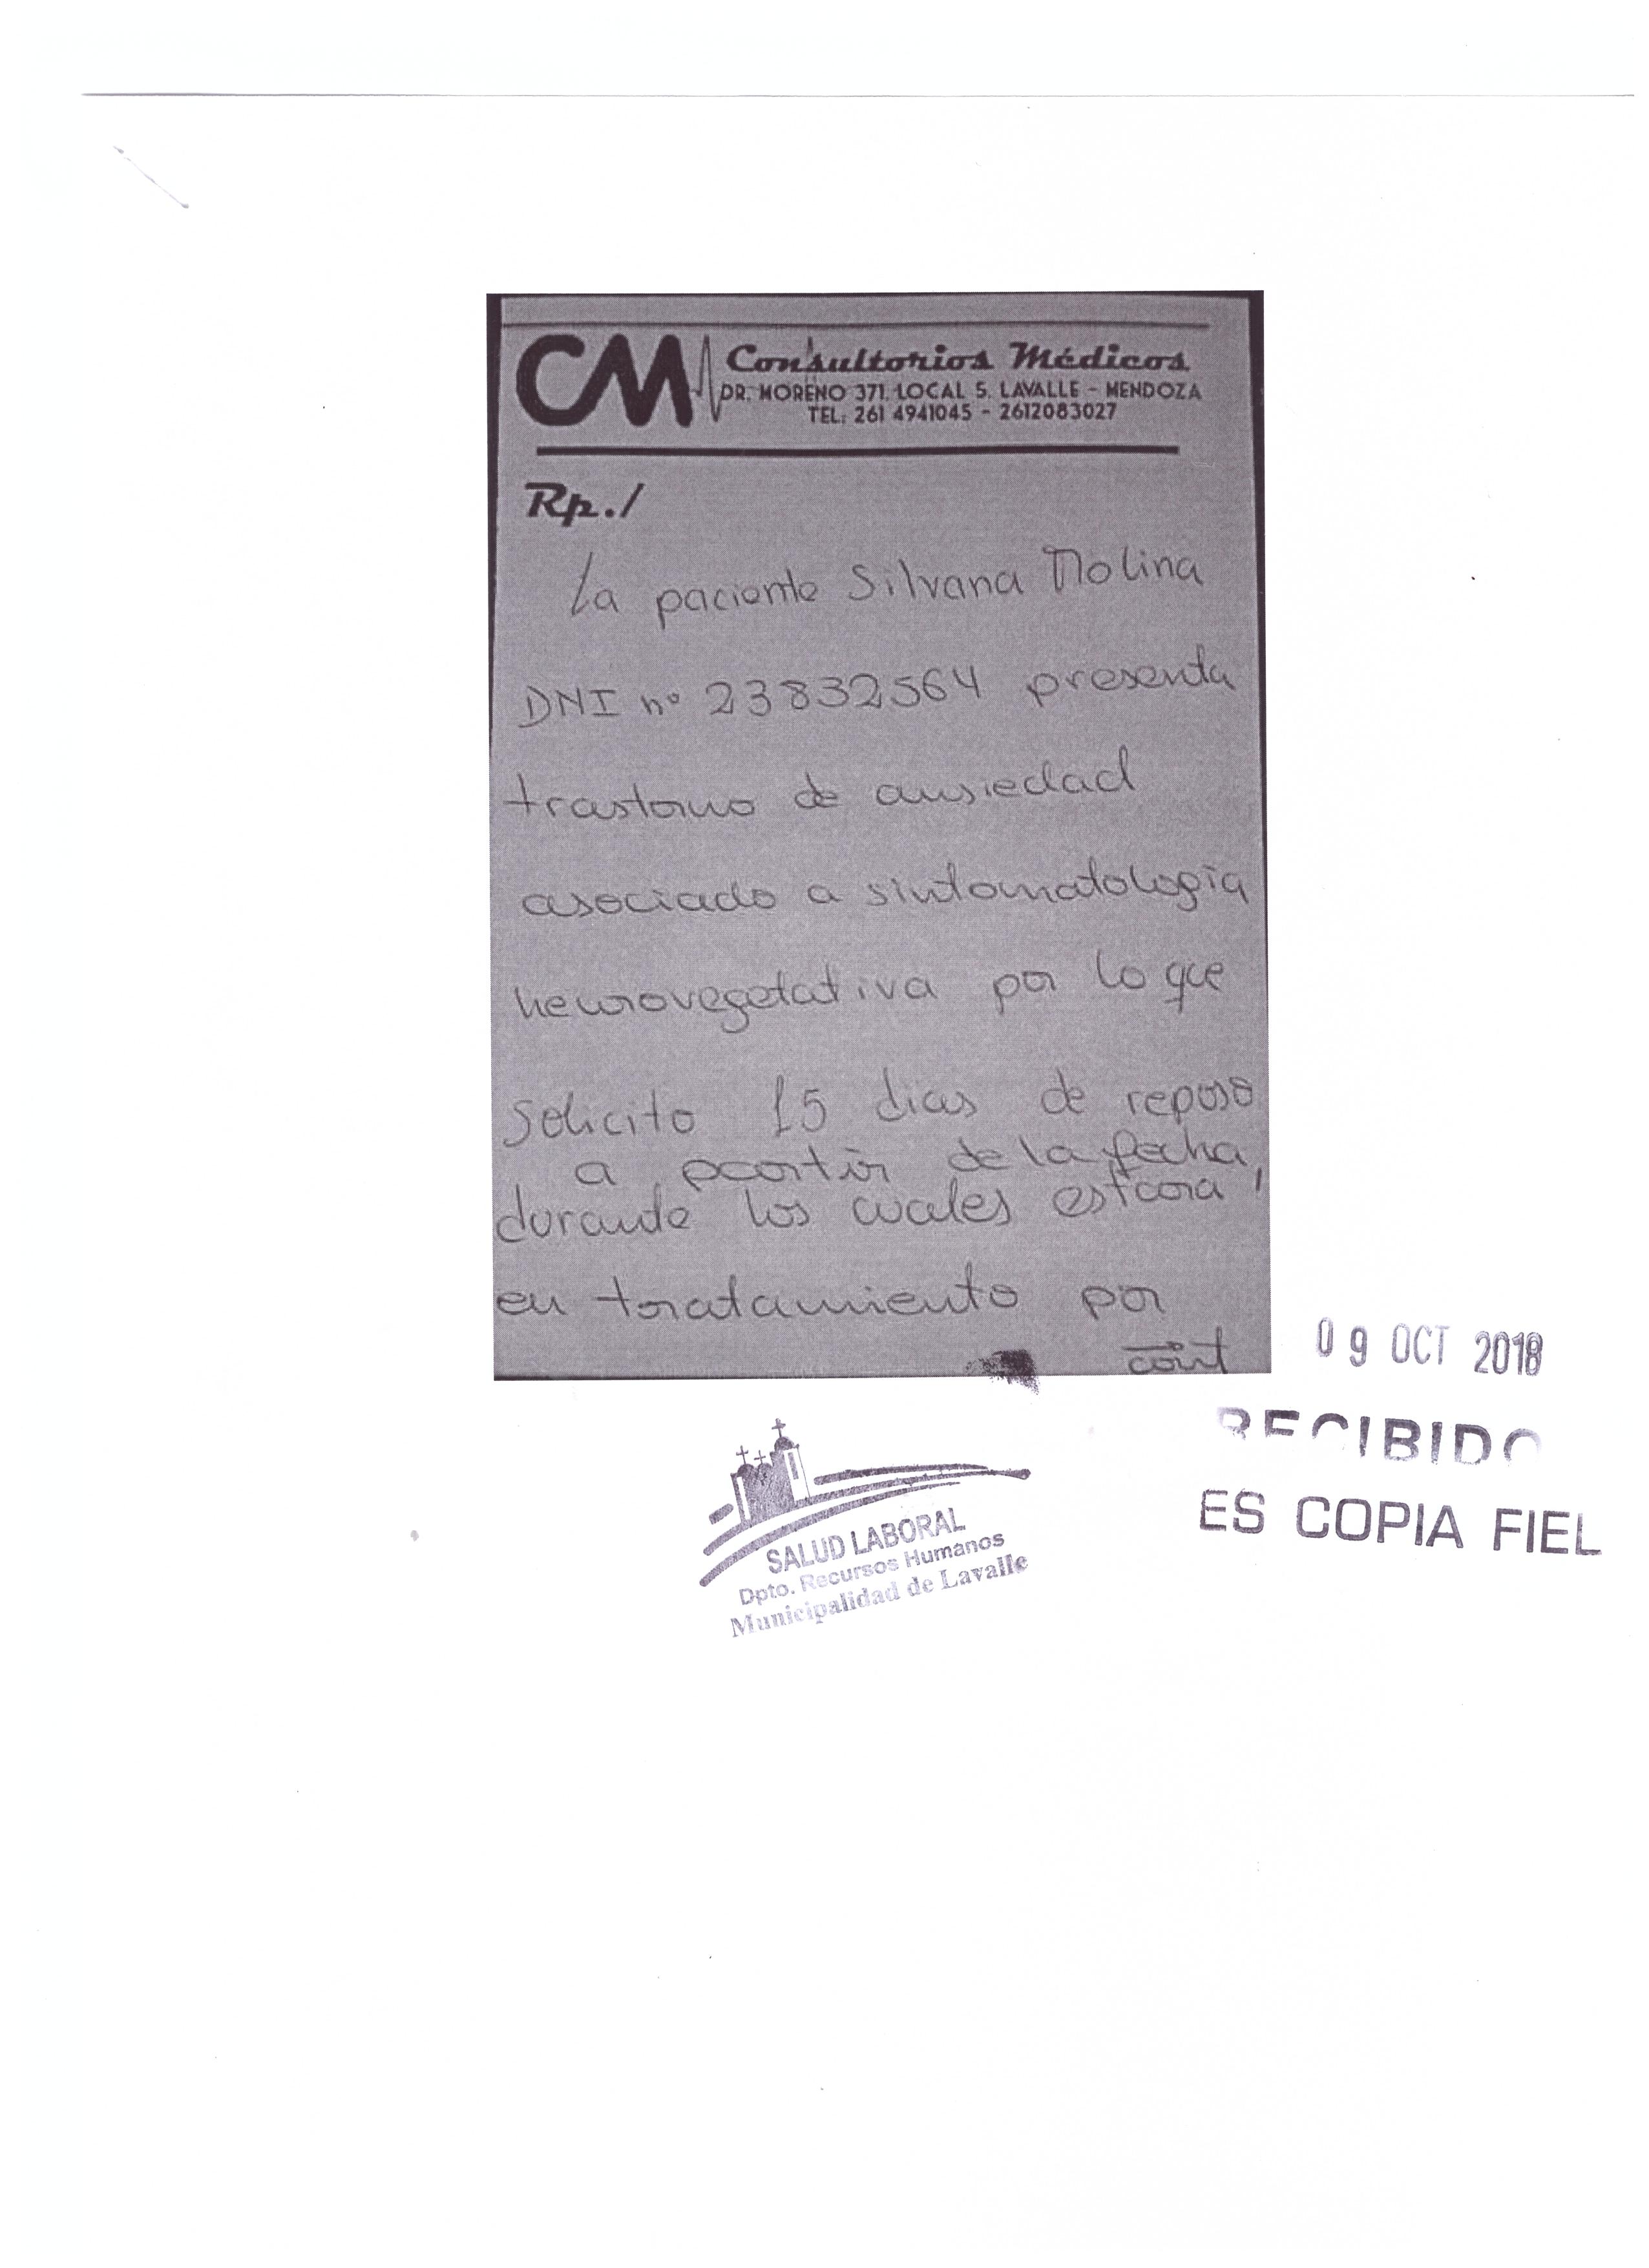 CM Consultorios Médicos
DR. MORENO 371. LOCAL 5. LAVALLE - MENDOZA
TEL: 261 4941045 - 2612083027
Rp./
La paciente Silvana Molina
DNI nº 23832564 presenta
trastorno de ansiedad
asociado a sintomatología
neurovegetativa por lo que
solicito 15 dias de reposo
a partir de la fecha,
durante los cuales estará
en tratamiento por
09 OCT 2018
RECIBIDO
ES COPIA FIEL
SALUD LABORAL
Dpto. Recursos Humanos
Municipalidad de Lavalle